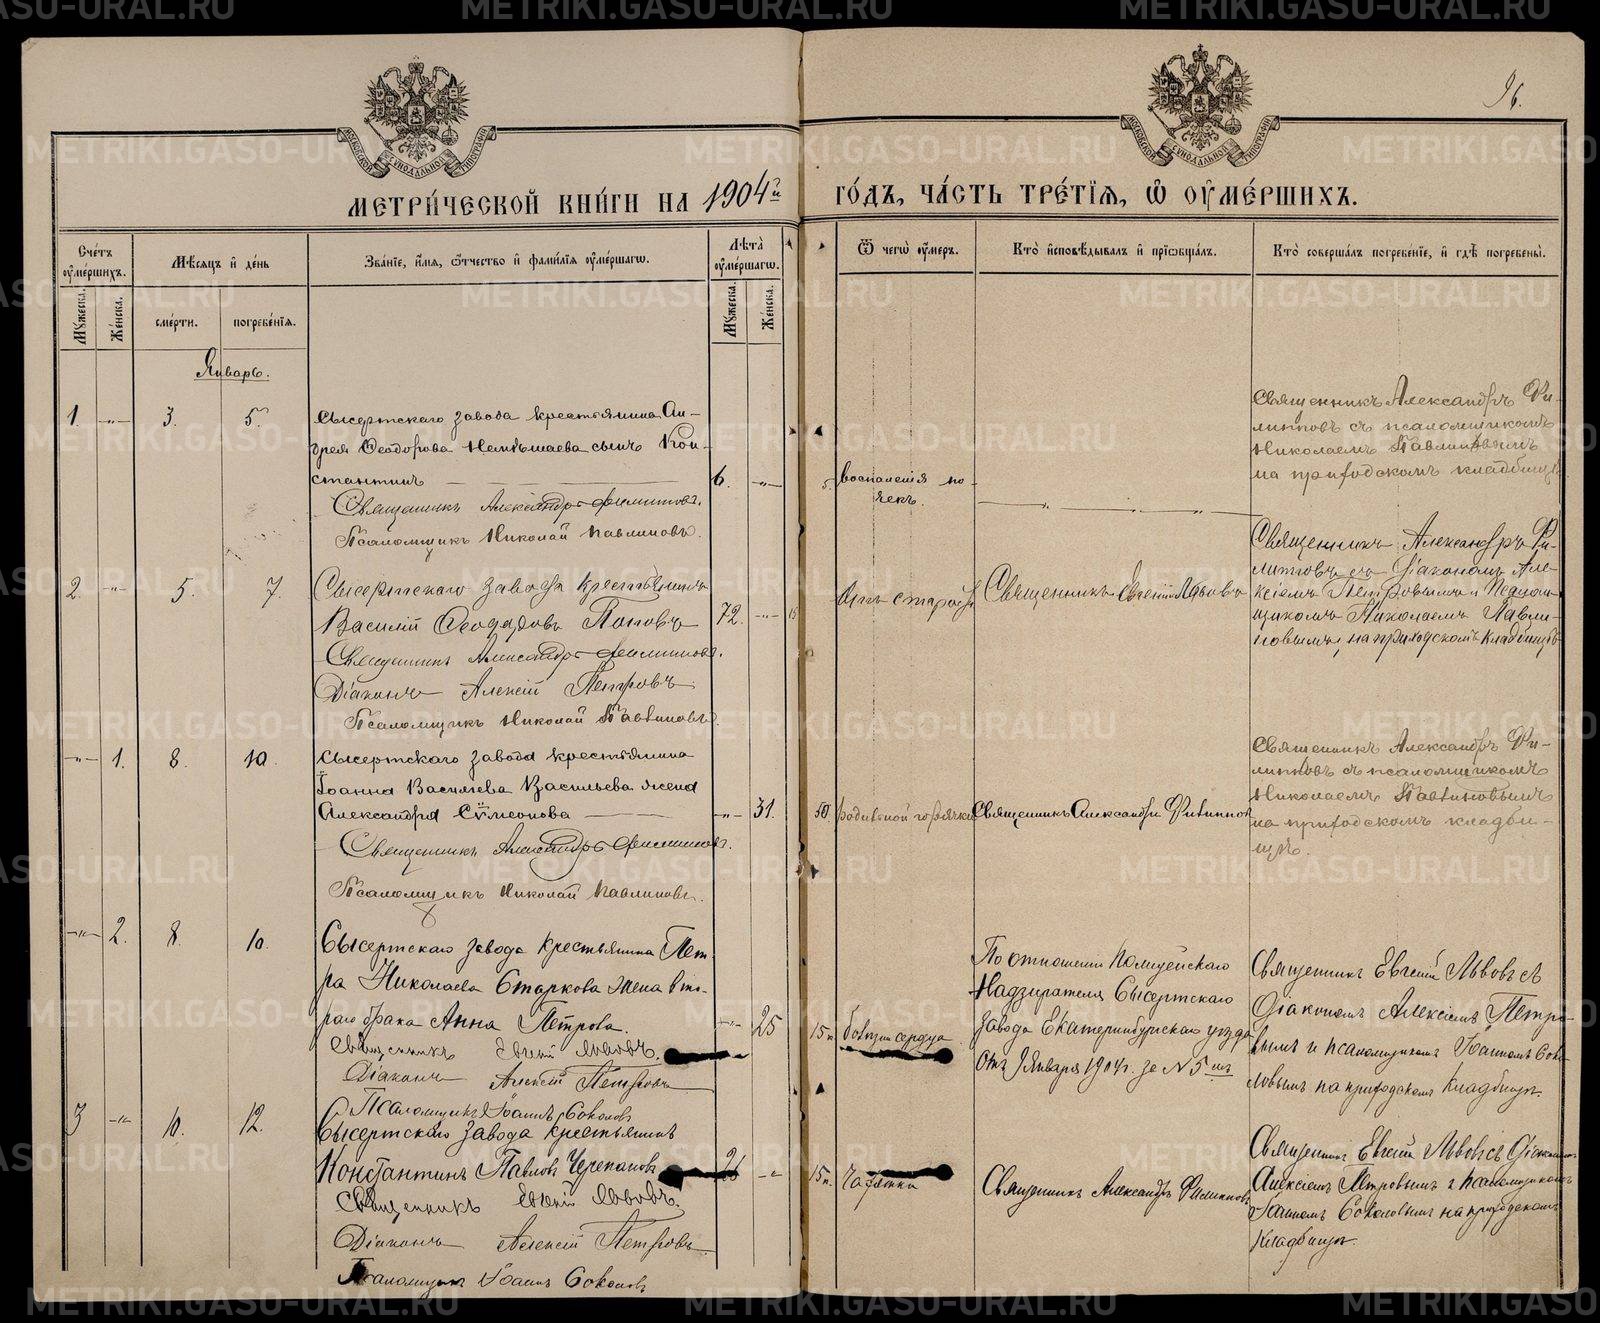 96.
МОСКОВСКОЙ СУНОДАЛЬНОЙ ТИПОГРАФІИ
МОСКОВСКОЙ СУНОДАЛЬНОЙ ТИПОГРАФІИ
МЕТРИ́ЧЕСКОЙ КНИ́ГИ НА 1904й ГО́ДЪ, ЧА́СТЬ ТРЕ́ТІѦ, Ѽ ОУ҆МЕ́РШИХЪ.
Сче́тъ оу҆ме́ршихъ.
Мѣ́сѧцъ и҆ де́нь
Зва́нїе, и҆́мѧ, ѻ҆́тчество и҆ фами́лїѧ оу҆ме́ршагѡ.
Лѣ́та оу҆ме́ршагѡ.
Ѿ чегѡ̀ оу҆́меръ.
Кто̀ и҆сповѣ́дывалъ и҆ прїѡбща́лъ.
Кто̀ соверша́лъ погребе́нїе, и҆ гдѣ̀ погребены̀.
Мꙋ́жеска.
Же́нска.
сме́рти.
погребе́нїѧ.
Мꙋ́жеска.
Же́нска.
Январь.
1. -"- 3. 5.
Сысертскаго завода крестьянина Ан-
дрея Ѳеодорова Немѣшаева сынъ Кон-
стантинъ
6. -"-
Священникъ Александръ Филипповъ.
Псаломщикъ Николай Павлиновъ.
воспаленія по-
чекъ.
Священникъ Александръ Фи-
липповъ съ псаломщикомъ
Николаемъ Павлиновымъ
на приходскомъ кладбищѣ
2. -"- 5. 7.
Сысертскаго завода крестьянинъ
Василій Ѳеодоровъ Поповъ
72. -"-
Священникъ Александръ Филипповъ.
Діаконъ Алексій Петровъ
Псаломщикъ Николай Павлиновъ.
Отъ старости
Священникъ Евгеній Львовъ
Священникъ Александръ Фи-
липповъ съ Діакономъ Але-
ксіемъ Петровымъ и Псалом-
щикомъ Николаемъ Павли-
новымъ, на приходскомъ кладбищѣ
-"- 1. 8. 10.
Сысертскаго завода крестьянина
Іоанна Васильева Васильева жена
Александра Сѵмеонова
-"- 31.
Священникъ Александръ Филипповъ.
Псаломщикъ Николай Павлиновъ.
родильной горячки
Священникъ Александръ Филиппов
Священникъ Александръ Фи-
липповъ съ псаломщикомъ
Николаемъ Павлиновымъ
на приходскомъ кладби-
щѣ.
-"- 2. 8. 10.
Сысертскаго завода крестьянина Пет-
ра Николаева Старкова жена вто-
раго брака Анна Петрова.
-"- 25
Священникъ Евгеній Львовъ.
Діаконъ Алексій Петровъ
Псаломщикъ Іоаннъ Соколовъ
болѣзни сердца
По отношенію Полицейскаго
Надзирателя Сысертскаго
завода Екатеринбургскаго уѣзда
отъ 9 Января 1904 г. за № 5мъ
Священникъ Евгеній Львовъ съ
Діакономъ Алексіемъ Петро-
вымъ и псаломщикомъ Іоанномъ Соко-
ловымъ на приходскомъ кладбищѣ.
3 -"- 10. 12.
Сысертскаго завода крестьянинъ
Константинъ Павловъ Черепановъ
26 -"-
Священникъ Евгеній Львовъ.
Діаконъ Алексій Петровъ
Псаломщикъ Іоаннъ Соколовъ
Чахотки
Священникъ Александръ Филипповъ
Священникъ Евгеній Львовъ съ Діакономъ
Алексіемъ Петровымъ и псаломщикомъ
Іоанномъ Соколовымъ на приходскомъ
кладбищѣ.
METRIKI.GASO-URAL.RU